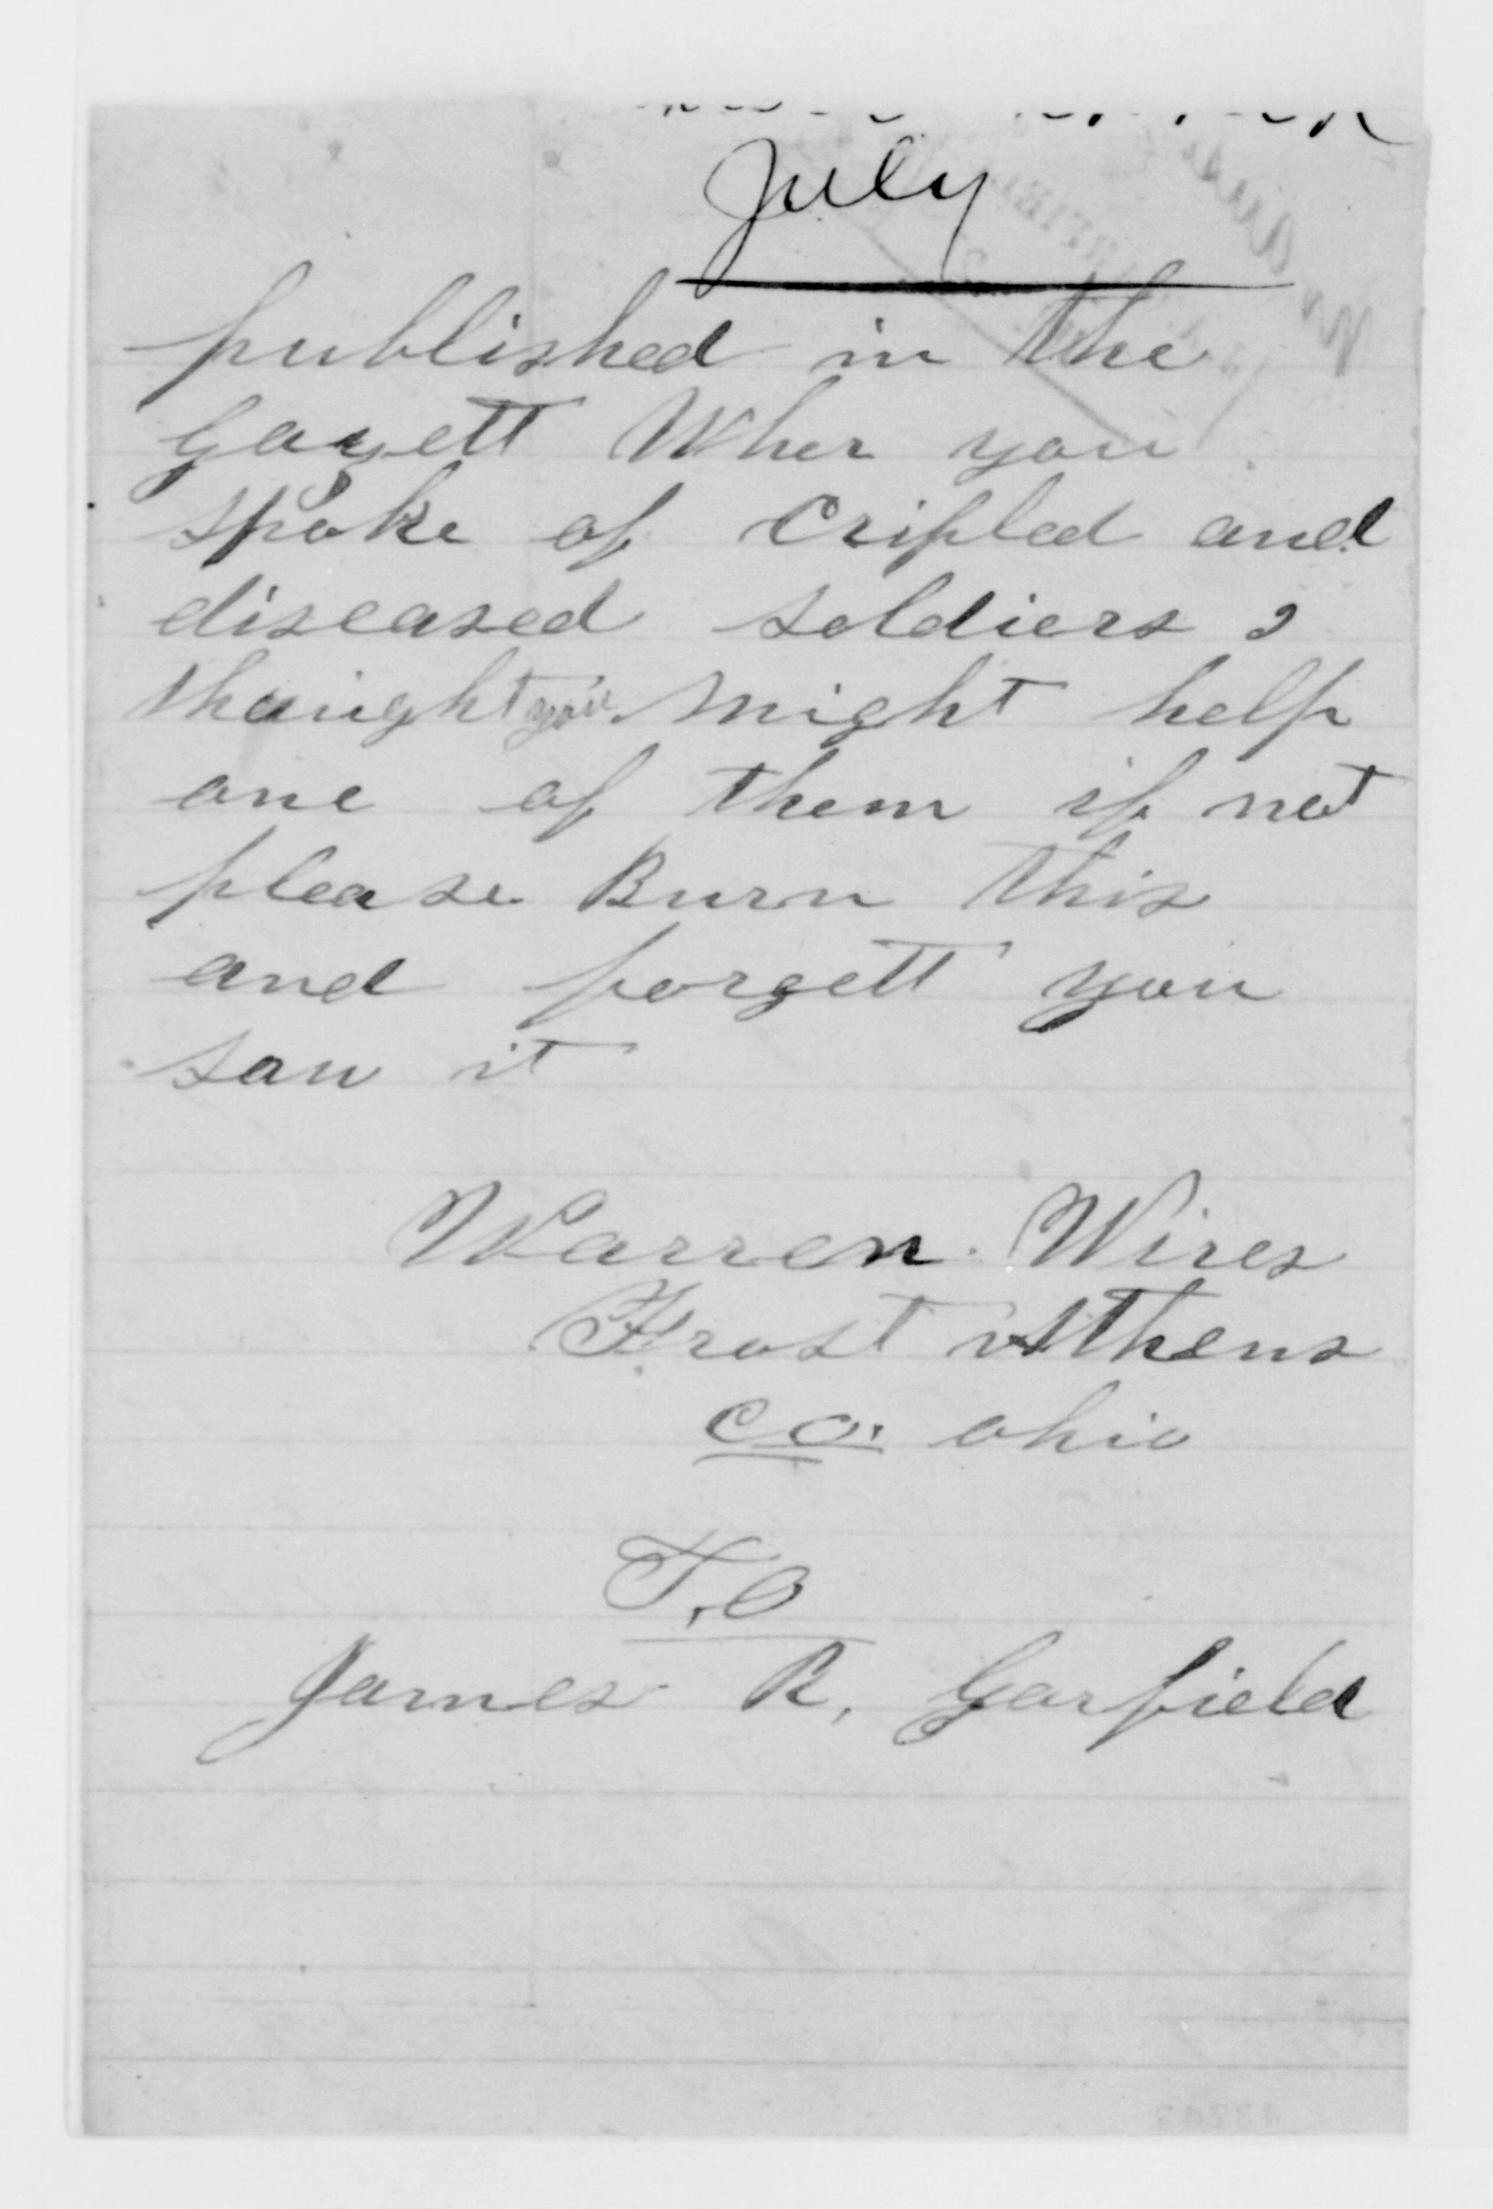 July
published in the
Gazett Wher you
spoke of Cripled and
diseased soldiers I
thaught you might help
one of them if not
please Burn this
and forgett you
saw it
Warren Wires
Frost Athens
Co. ohio
T.O
James R. Garfield